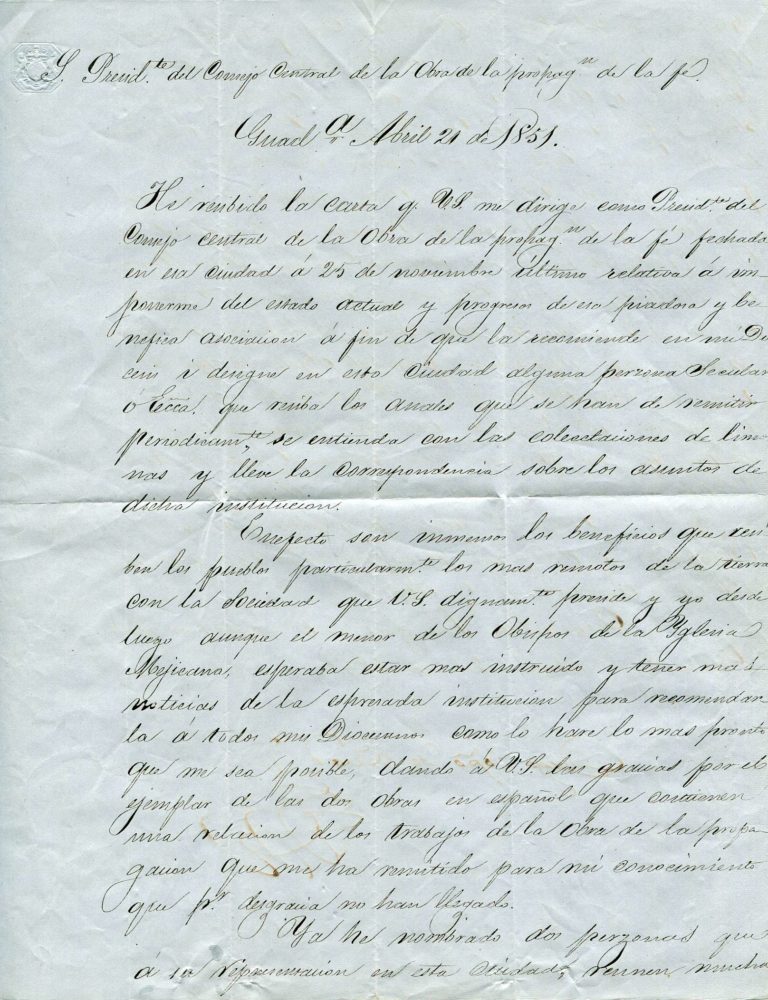 S. Presid.te del Consejo Central de la Obra de la propag.n de la fé.
Guad.a r Abril 21 de 1851.
He recibido la carta q. V.S. me dirige como Presid.te del
Consejo central de la Obra de la propag.n de la fé fechada
en esa ciudad á 25 de noviembre último relativa á im-
ponerme del estado actual y progresos de esa piadosa y be-
nefica asociacion á fin de que la recomiende en mi Dio
cesis i designe en esta Ciudad alguna perzona Secular
ó Ecca. que reciba los anales que se han de remitir
periodicam.te, se entienda con las colectaciones de lim
nas y lleve la correspondencia sobre los asuntos de
dicha institucion.
Enefecto son inmensos los beneficios que reci
ben los pueblos particularm.te los mas remotos de la tierra
con la Sociedad que V.S. dignam.te preside y yo desde
luego aunque el menor de los Obispos de la Yglesia
Mejicana, esperaba estar mas instruido y tener mas
noticias de la espresada institucion para recomendar
la á todos mis Diocesanos como lo hare lo mas pronto
que me sea posible, dando á V.S. las gracias por el
ejemplar de las dos obras en español que contienen
una relacion de los trabajos de la Obra de la propa
gacion que me ha remitido para mi conocimiento
que p.r desgracia no han llegado.
Ya he nombrado dos perzonas que
á su representacion en esta Ciudad, reunen mucha